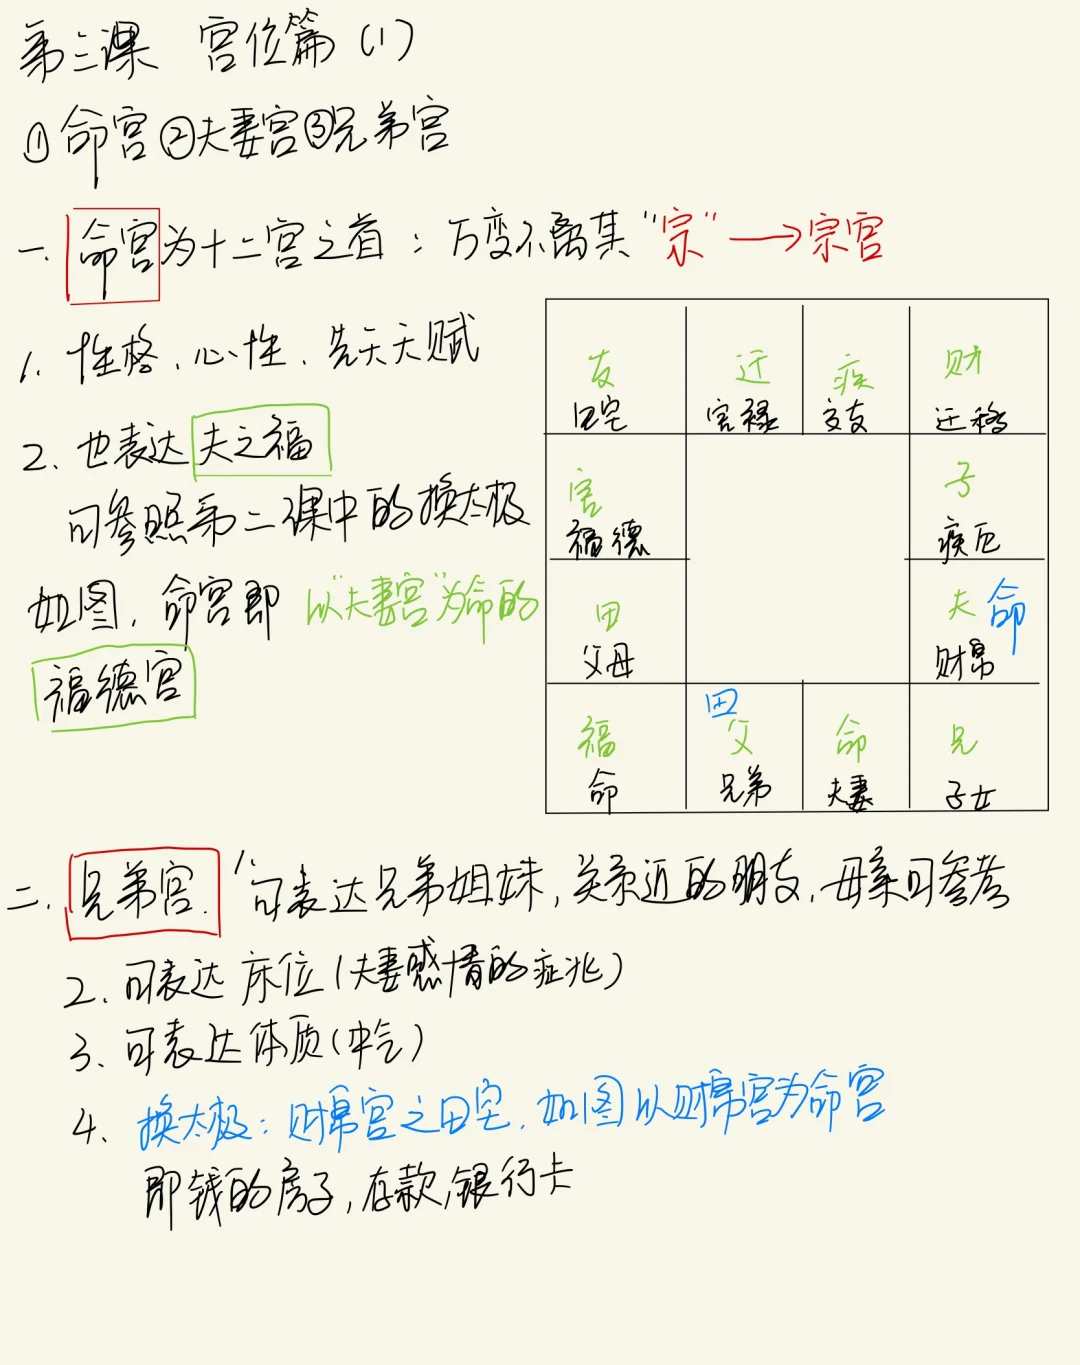 第三课 宫位篇(1)
①命宫②夫妻宫③兄弟宫
一. 命宫为十二宫之首：万变不离其"宗"→宗宫
1. 性格、心性、先天天赋
2. 也表达夫之福
可参照第二课中的换太极
如图，命宫即 以"夫妻宫"为命的
福德宫
友 迁 疾 财
田宅 官禄 交友 迁移
官 子
福德 疾厄
田 夫 命
父母 财帛
田
福 父 命 兄
命 兄弟 夫妻 子女
二. 兄弟宫. 1. 可表达兄弟姐妹，关系近的朋友，母亲可参考
2. 可表达床位(夫妻感情的症兆)
3. 可表达体质(中气)
4. 换太极：财帛宫之田宅，如图以财帛宫为命宫
即钱的房子，存款，银行卡